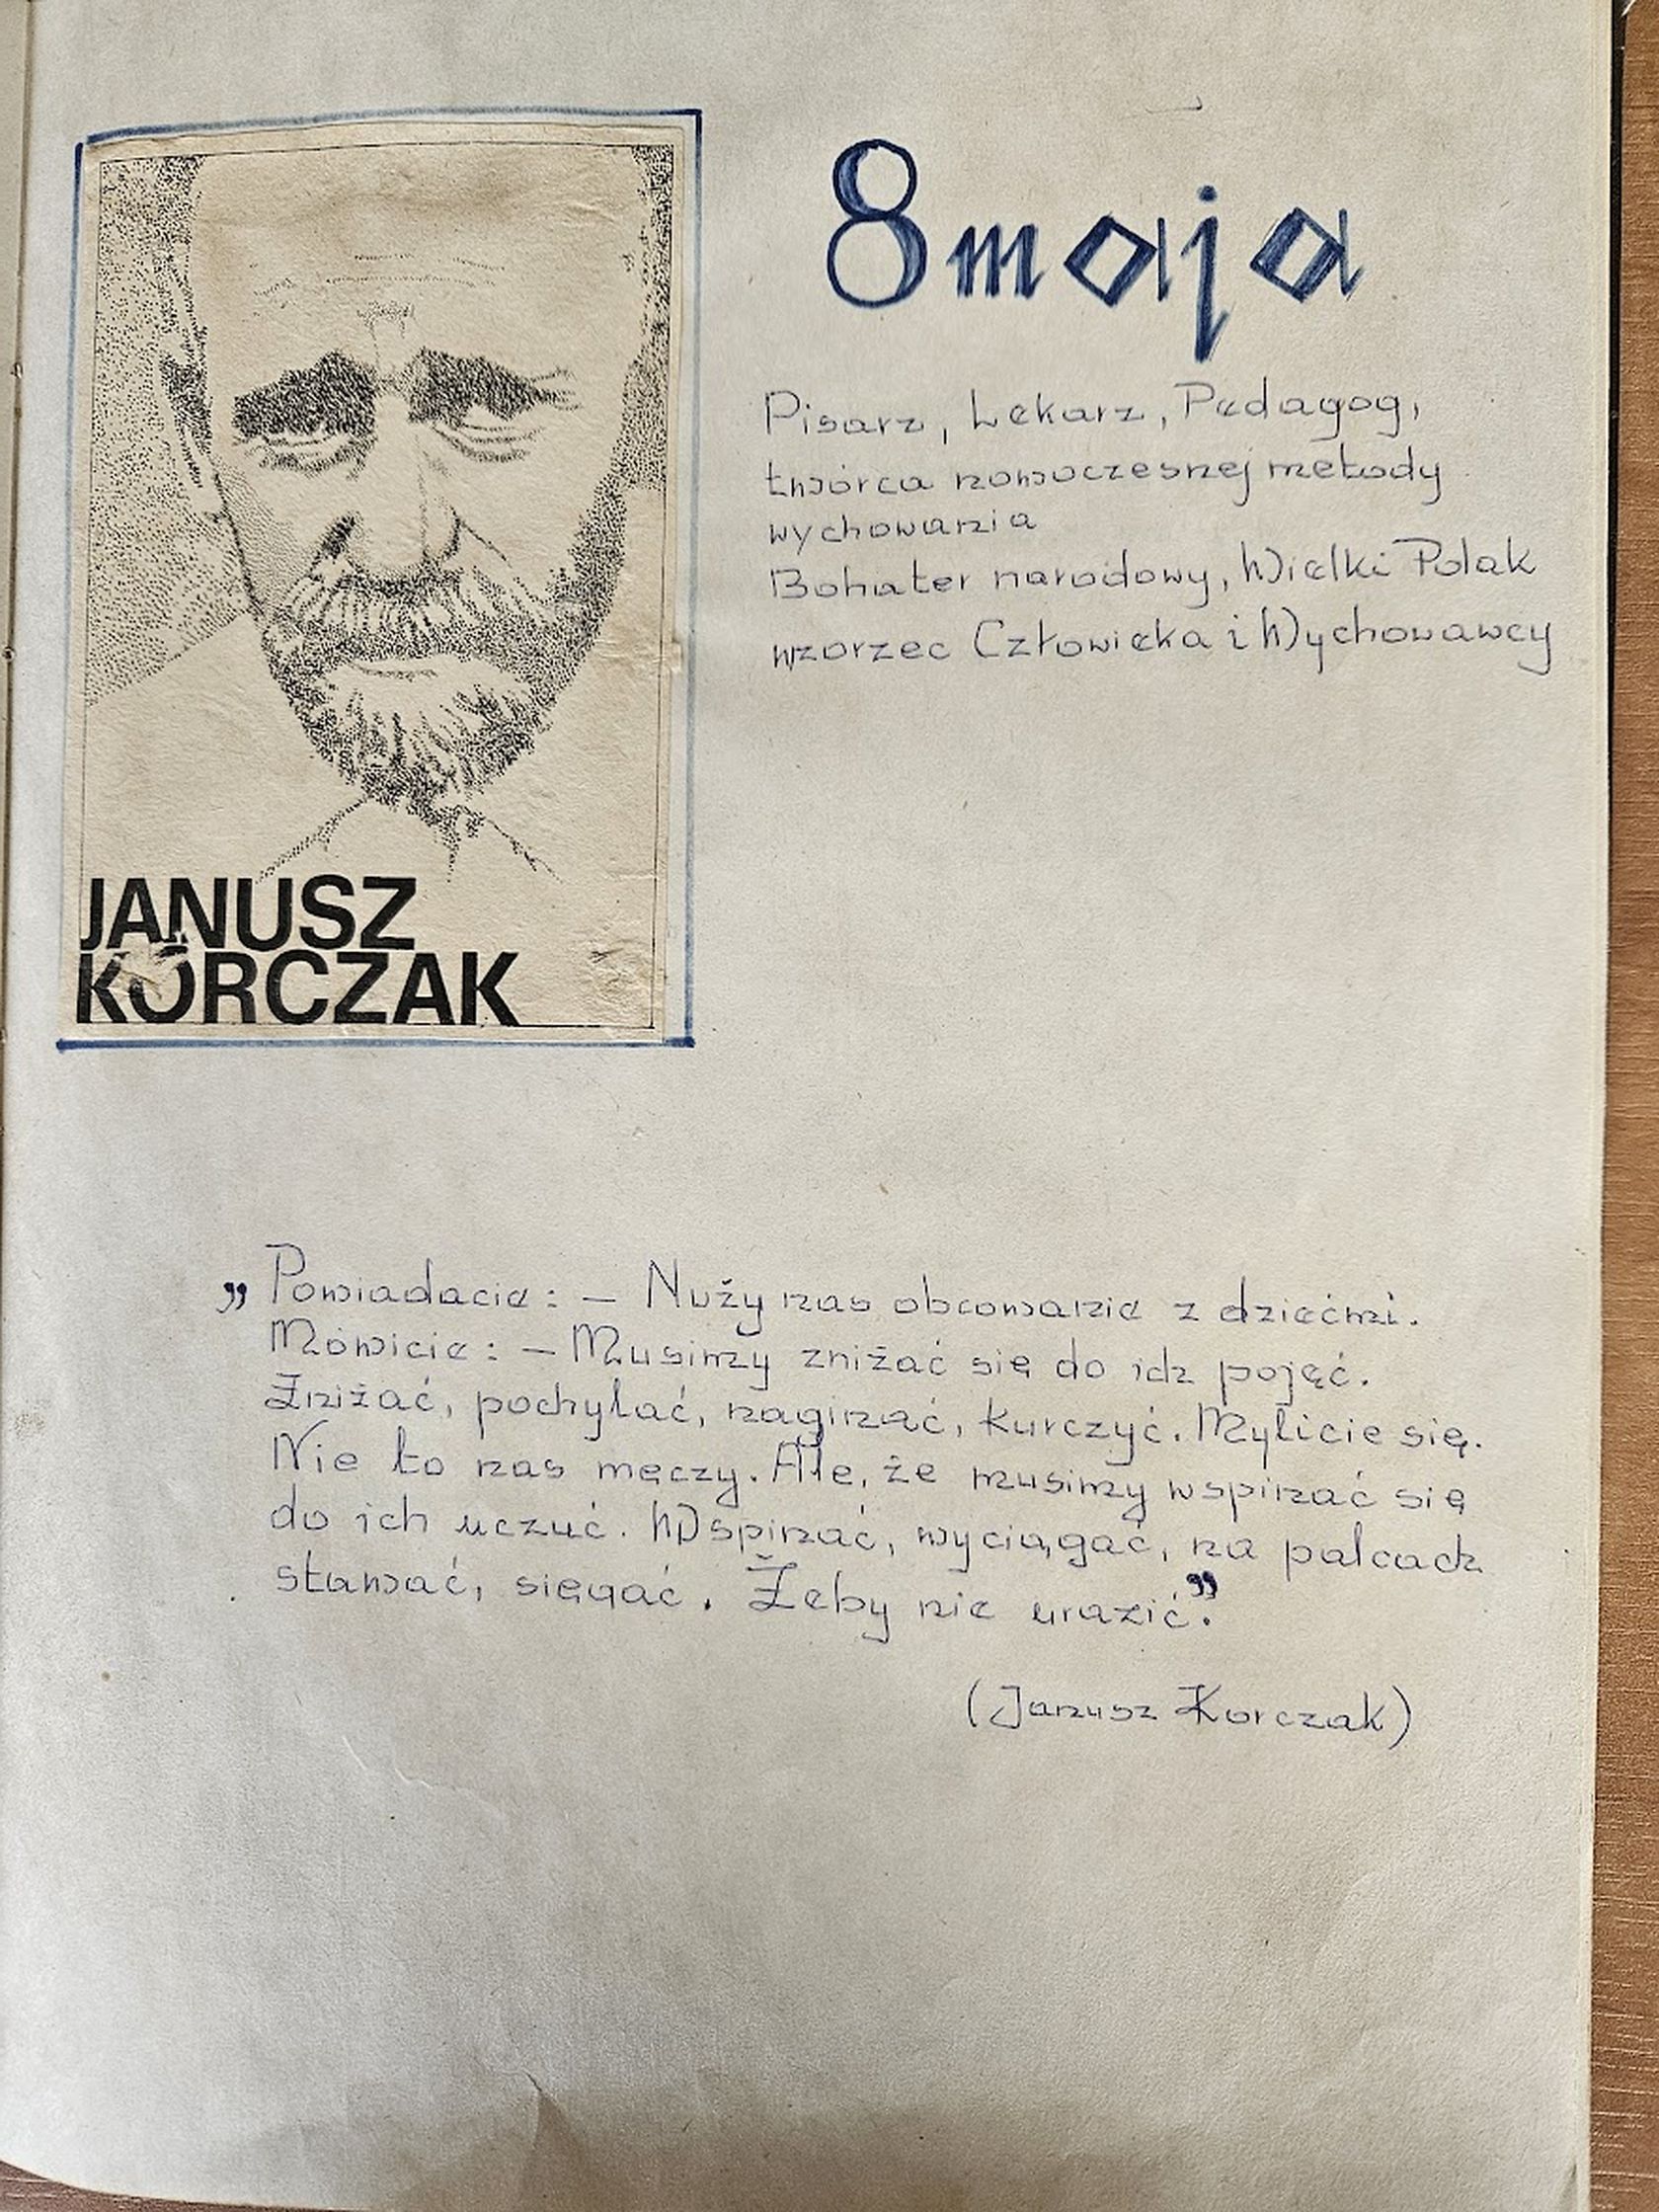 JANUSZ
KORCZAK
8 maja
Pisarz, Lekarz, Pedagog,
twórca nowoczesnej metody
wychowania
Bohater narodowy, Wielki Polak
wzorzec Człowieka i Wychowawcy
„Powiadacie: – Nuży nas obcowanie z dziećmi.
Mówicie: – Musimy zniżać się do ich pojęć.
Zniżać, pochylać, naginać, kurczyć. Mylicie się.
Nie to nas męczy. Ale, że musimy wspinać się
do ich uczuć. Wspinać, wyciągać, na palcach
stawać, sięgać. Żeby nie urazić.”
(Janusz Korczak)